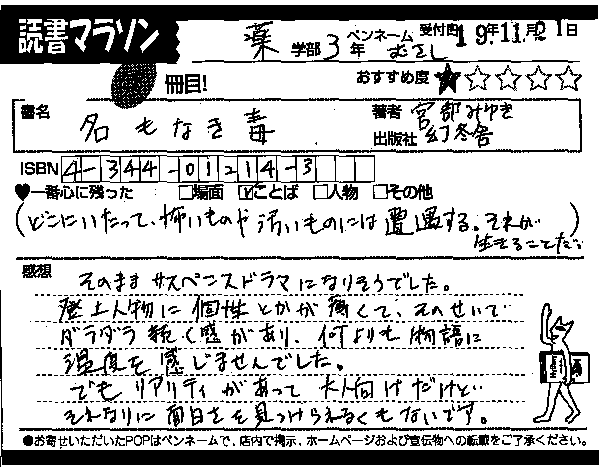 読書マラソン
薬 学部 3 年 ペンネーム むさし 受付日 19年11月21日
冊目! おすすめ度 ★☆☆☆☆
書名 名もなき毒 著者 宮部みゆき
出版社 幻冬舎
ISBN 4-344-01214-3
♥一番心に残った □場面 ☑ことば □人物 □その他
(どこにいたって、怖いものや汚いものには遭遇する。それが
生きることだ。)
感想
そのままサスペンスドラマになりそうでした。
登上人物に個性とかが薄くて、そのせいで
ダラダラ続く感があり、何よりも物語に
温度を感じませんでした。
でもリアリティがあって大人向けだけど…
それなりに面白さを見つけられなくもないです。
●お寄せいただいたPOPはペンネームで、店内で掲示、ホームページおよび宣伝物への転載をご了承ください。